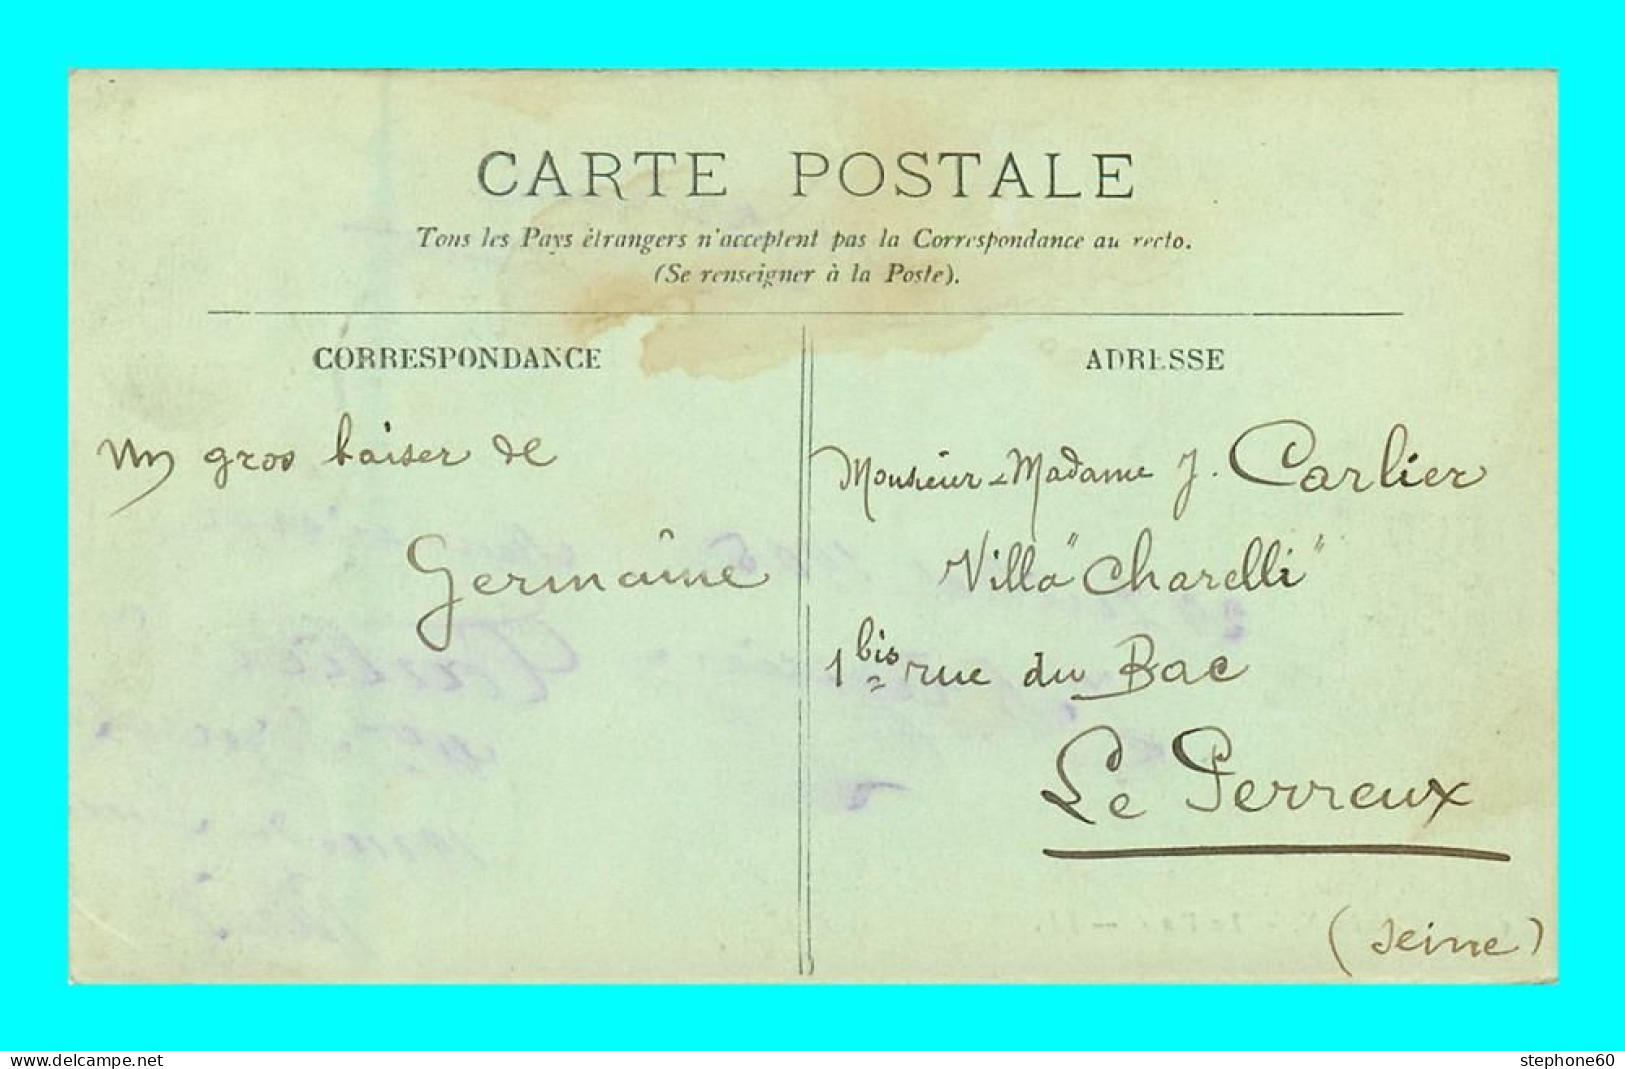 CARTE POSTALE
Tous les Pays étrangers n'acceptent pas la Correspondance au recto.
(Se renseigner à la Poste).
CORRESPONDANCE
Un gros baiser de
Germaine
ADRESSE
Monsieur & Madame J. Carlier
Villa "Charelli"
1 bis rue du Bac
Le Perreux
(Seine)
www.delcampe.net
stephone60